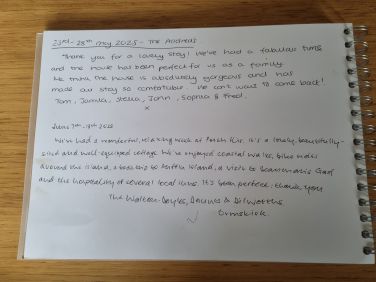 23rd - 28th May 2025 - The Andrews
Thank you for a lovely stay! We've had a fabulous time
and the house has been perfect for us as a family.
We think the house is absolutely gorgeous and has
made our stay so comfortable. We can't wait to come back!
Tom, Jamila, Stella, John, Sophia & Fred.
x
June 7th - 14th 2025
We've had a wonderful, relaxing week at It's a lovely, beautifully-
sited and well-equipped cottage. We've enjoyed coastal walks, bike rides
around the island, a boat trip to Puffin Island, a visit to Beaumaris Gaol
and the hospitality of several local inns. It's been perfect, thank you
The Walton-Doyles, & Dilworths,
Ormskirk